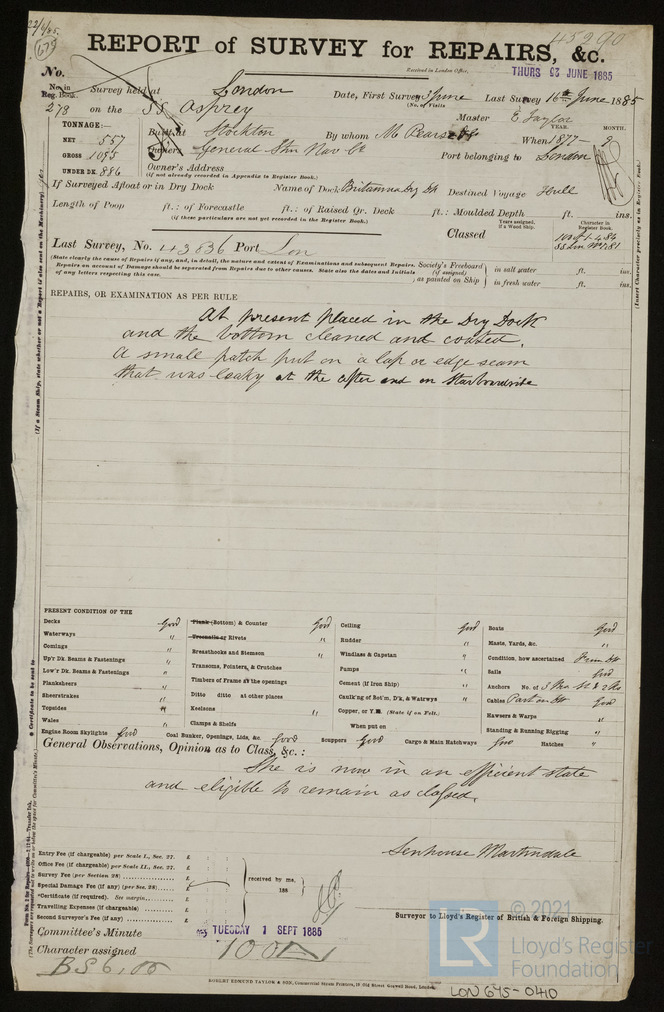 22/6/85.
679
45290
REPORT of SURVEY for REPAIRS, &c.
Received in London Office, THURS 23 JUNE 1885
No.
No. in Reg. Book. 273
Survey held at London Date, First Survey 3 June Last Survey 16th June 1885
(No. of Visits
on the SS Osprey Master E. Taylor
TONNAGE:—
NET 557
GROSS 1095
UNDER DK. 886
Built at Stockton By whom M Pearse & Co When 1877 - 9
YEAR. MONTH.
Owners General Stm Nav Co Port belonging to London
Owner's Address
(if not already recorded in Appendix to Register Book.)
If Surveyed Afloat or in Dry Dock Name of Dock Britannia Dry Dk Destined Voyage Hull
Length of Poop ft.: of Forecastle ft.: of Raised Qr. Deck ft.: Moulded Depth ft. ins.
(if these particulars are not yet recorded in the Register Book.)
Years assigned, if a Wood Ship.
Character in Register Book.
Classed 100 A1 - 4.84
SS Lon No 1.81
Last Survey, No. 43636 Port Lon
(State clearly the cause of Repairs if any, and, in detail, the nature and extent of Examinations and subsequent Repairs.
Repairs on account of Damage should be separated from Repairs due to other causes. State also the dates and Initials of any letters respecting this case.
Society's Freeboard (if assigned) as painted on Ship in salt water ft. ins.
in fresh water ft. ins.
REPAIRS, OR EXAMINATION AS PER RULE
At present placed in the Dry Dock
and the bottom cleaned and coated.
A small patch put on a lap or edge seam
that was leaky at the after end on Starboardside
PRESENT CONDITION OF THE
Decks Good
Waterways "
Comings "
Up'r Dk. Beams & Fastenings "
Low'r Dk. Beams & Fastenings "
Planksheers "
Sheerstrakes "
Topsides "
Wales "
Engine Room Skylights Good
Plank (Bottom) & Counter Good
Treenails or Rivets "
Breasthooks and Stemson "
Transoms, Pointers, & Crutches
Timbers of Frame at the openings
Ditto ditto at other places
Keelsons "
Clamps & Shelfs
Coal Bunker, Openings, Lids, &c. Good
Ceiling Good
Rudder "
Windlass & Capstan "
Pumps "
Cement (if Iron Ship) "
Caulk'ng of Bot'm, D'k, & Watrwys "
Copper, or Y.M. (State if on Felt.)
When put on
Scuppers Good Cargo & Main Hatchways Good Hatches "
Boats Good
Masts, Yards, &c. "
Condition, how ascertained From Dk
Sails Good
Anchors No. of 3 Bra. St & 2 Ks
Cables Part on Dk Good
Hawsers & Warps "
Standing & Running Rigging "
General Observations, Opinion as to Class, &c.:
She is now in an efficient state
and eligible to remain as classed.
Senhouse Martindale
Surveyor to Lloyd's Register of British & Foreign Shipping.
Entry Fee (if chargeable) per Scale I., Sec. 27. £
Office Fee (if chargeable) per Scale II., Sec. 27. £
Survey Fee (per Section 28) £
Special Damage Fee (if any) (per Sec. 28) £
*Certificate (if required). See margin. £
Travelling Expenses (if chargeable) £
Second Surveyor's Fee (if any) £
received by me, 188
Committee's Minute TUESDAY 1 SEPT 1885
Character assigned 100 A1
BS 6,85
ROBERT EDMUND TAYLOR & SON, Commercial Steam Printers, 19 Old Street Goswell Road, London.
(If a Steam Ship, state whether or not a Report is also sent on the Machinery)
Certificate to be sent to
(Insert Character precisely as in Register Book.)
© 2021
LR
Lloyd's Register
Foundation
LON 645-0410